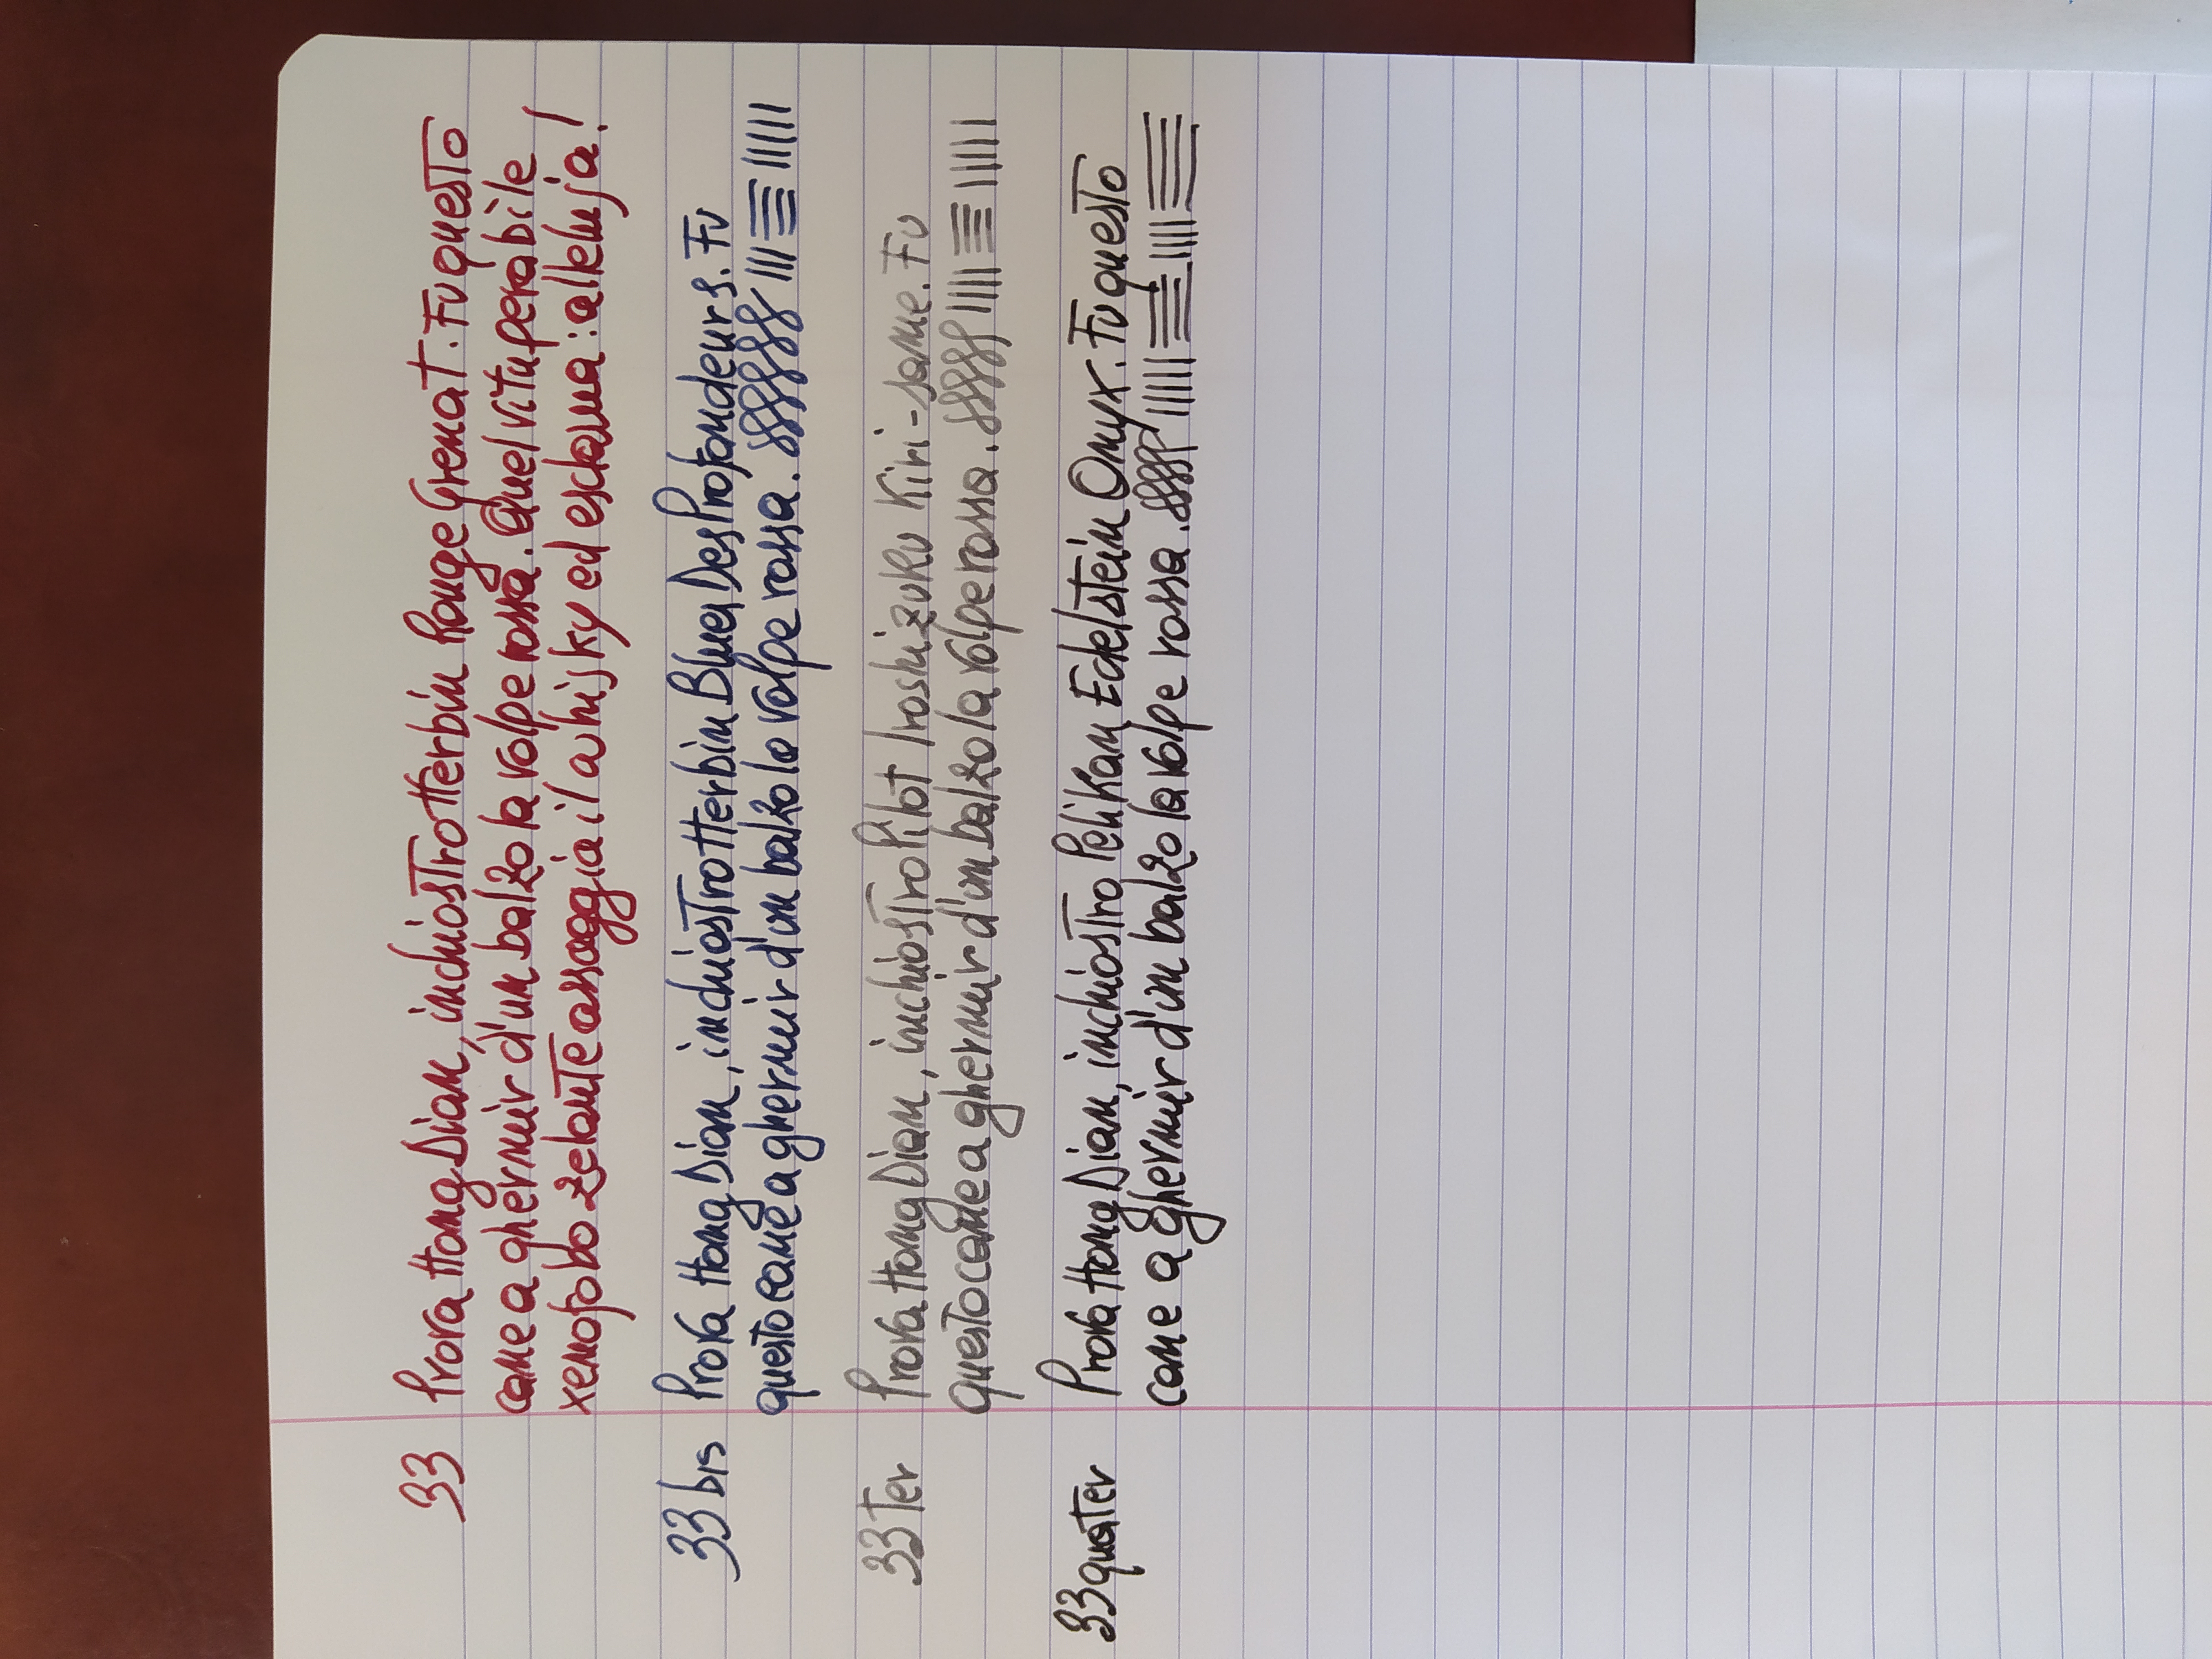 33 Prova Hong Dian, inchiostro Herbin Rouge Grenat. Fu questo
cane a ghermir d'un balzo la volpe rossa. Quel vituperabile
xenofobo zelante assaggia il whisky ed esclama: alleluja!
33 bis Prova Hong Dian, inchiostro Herbin Bleu Des Profondeurs. Fu
questo cane a ghermir d'un balzo la volpe rossa.
33 Ter Prova Hong Dian, inchiostro Pilot Iroshizuku Kiri-same. Fu
questo cane a ghermir d'un balzo la volpe rossa.
33 quater Prova Hong Dian, inchiostro Pelikan Edelstein Onyx. Fu questo
cane a ghermir d'un balzo la volpe rossa.